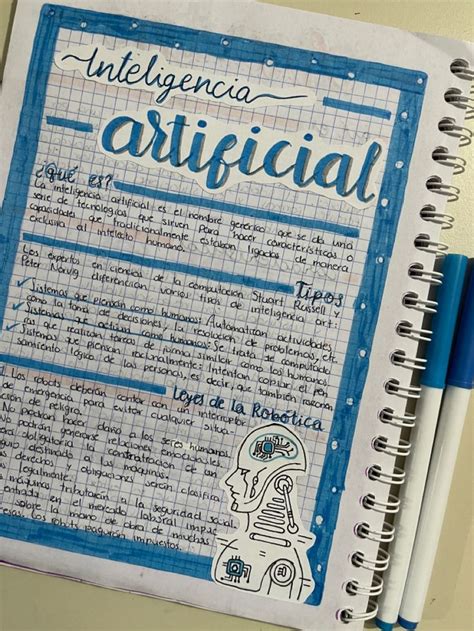 Inteligencia
artificial
¿Qué es?
La inteligencia artificial es el nombre genérico que se da una
serie de tecnologías que sirven para hacer características o
capacidades que tradicionalmente estaban ligados de manera
exclusiva al intelecto humano.
Tipos
Los expertos en ciencias de la computación Stuart Russell y
Peter Norvig diferencian varios tipos de inteligencia art:
Sistemas que piensan como humanos: Automatizan actividades
como la toma de decisiones, la resolución de problemas, etc.
Sistemas que actúan como humanos: Se trata de computado
ras que realizan tareas de forma similar como los humanos,
Sistemas que piensan racionalmente: Intentan copiar el pen
samiento lógico de las personas, es decir, que también razonan
Leyes de la Robótica
Los robots deberán contar con un interruptor
de emergencia para evitar cualquier situa-
ción de peligro.
No podrán hacer daño a los seres humanos
No podrán generarse relaciones emocionales.
obligatoria la contratación de un
seguro destinado a las máquinas.
derechos y obligaciones serán clasifica
legalmente.
máquina tributarán a la seguridad social.
entrada en el mercado laboral impac
sobre la mano de obra de muchas
los robots pagarán impuestos.